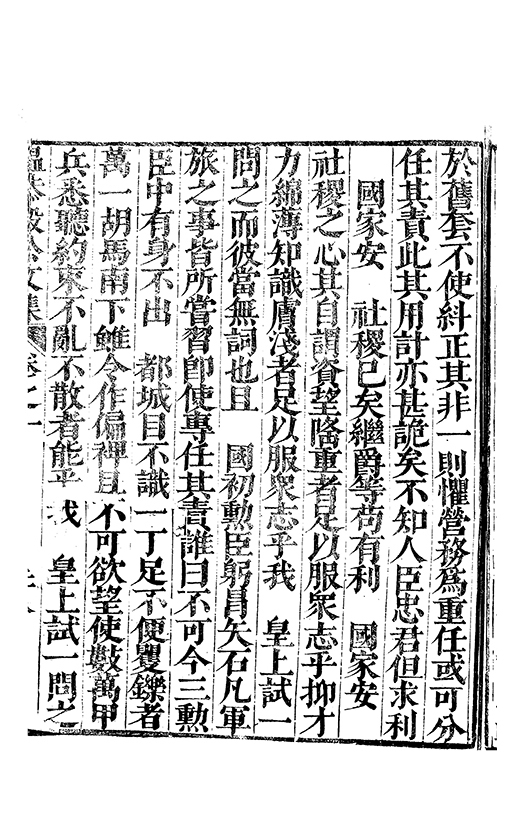 於舊套不使糾正其非一則懼營務為重任或可分
任其責此其用計亦甚詭矣不知人臣忠君但求利
國家安　社稷已矣繼爵等苟有利　國家安
社稷之心其自謂資望隆重者足以服眾志乎抑才
力綿薄知識膚淺者足以服眾志乎我　皇上試一
問之而彼當無詞也且　國初勳臣躬冒矢石凡軍
旅之事皆所嘗習即使專任其責誰曰不可今三勳
臣中有身不出　都城目不識一丁足不便矍鑠者
萬一胡馬南下雖令作偏裨且不可欲望使數萬甲
兵悉聽約束不亂不散者能乎我　皇上試一問之
溫恭毅公文集　卷之一